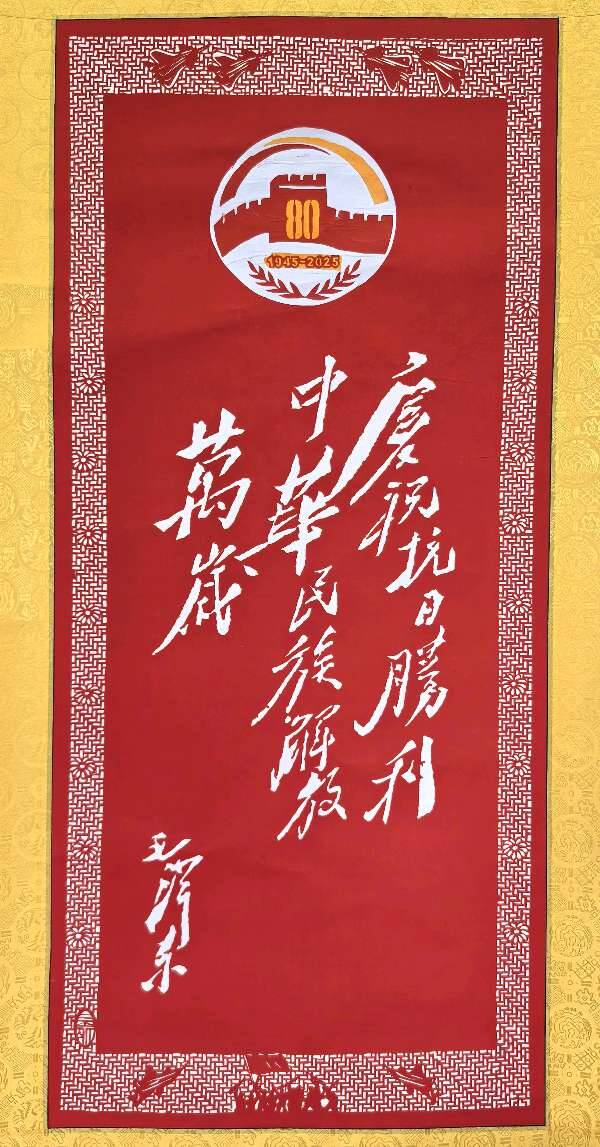 80
1945-2025
慶祝抗日勝利
中華民族解放
萬歲
毛澤东